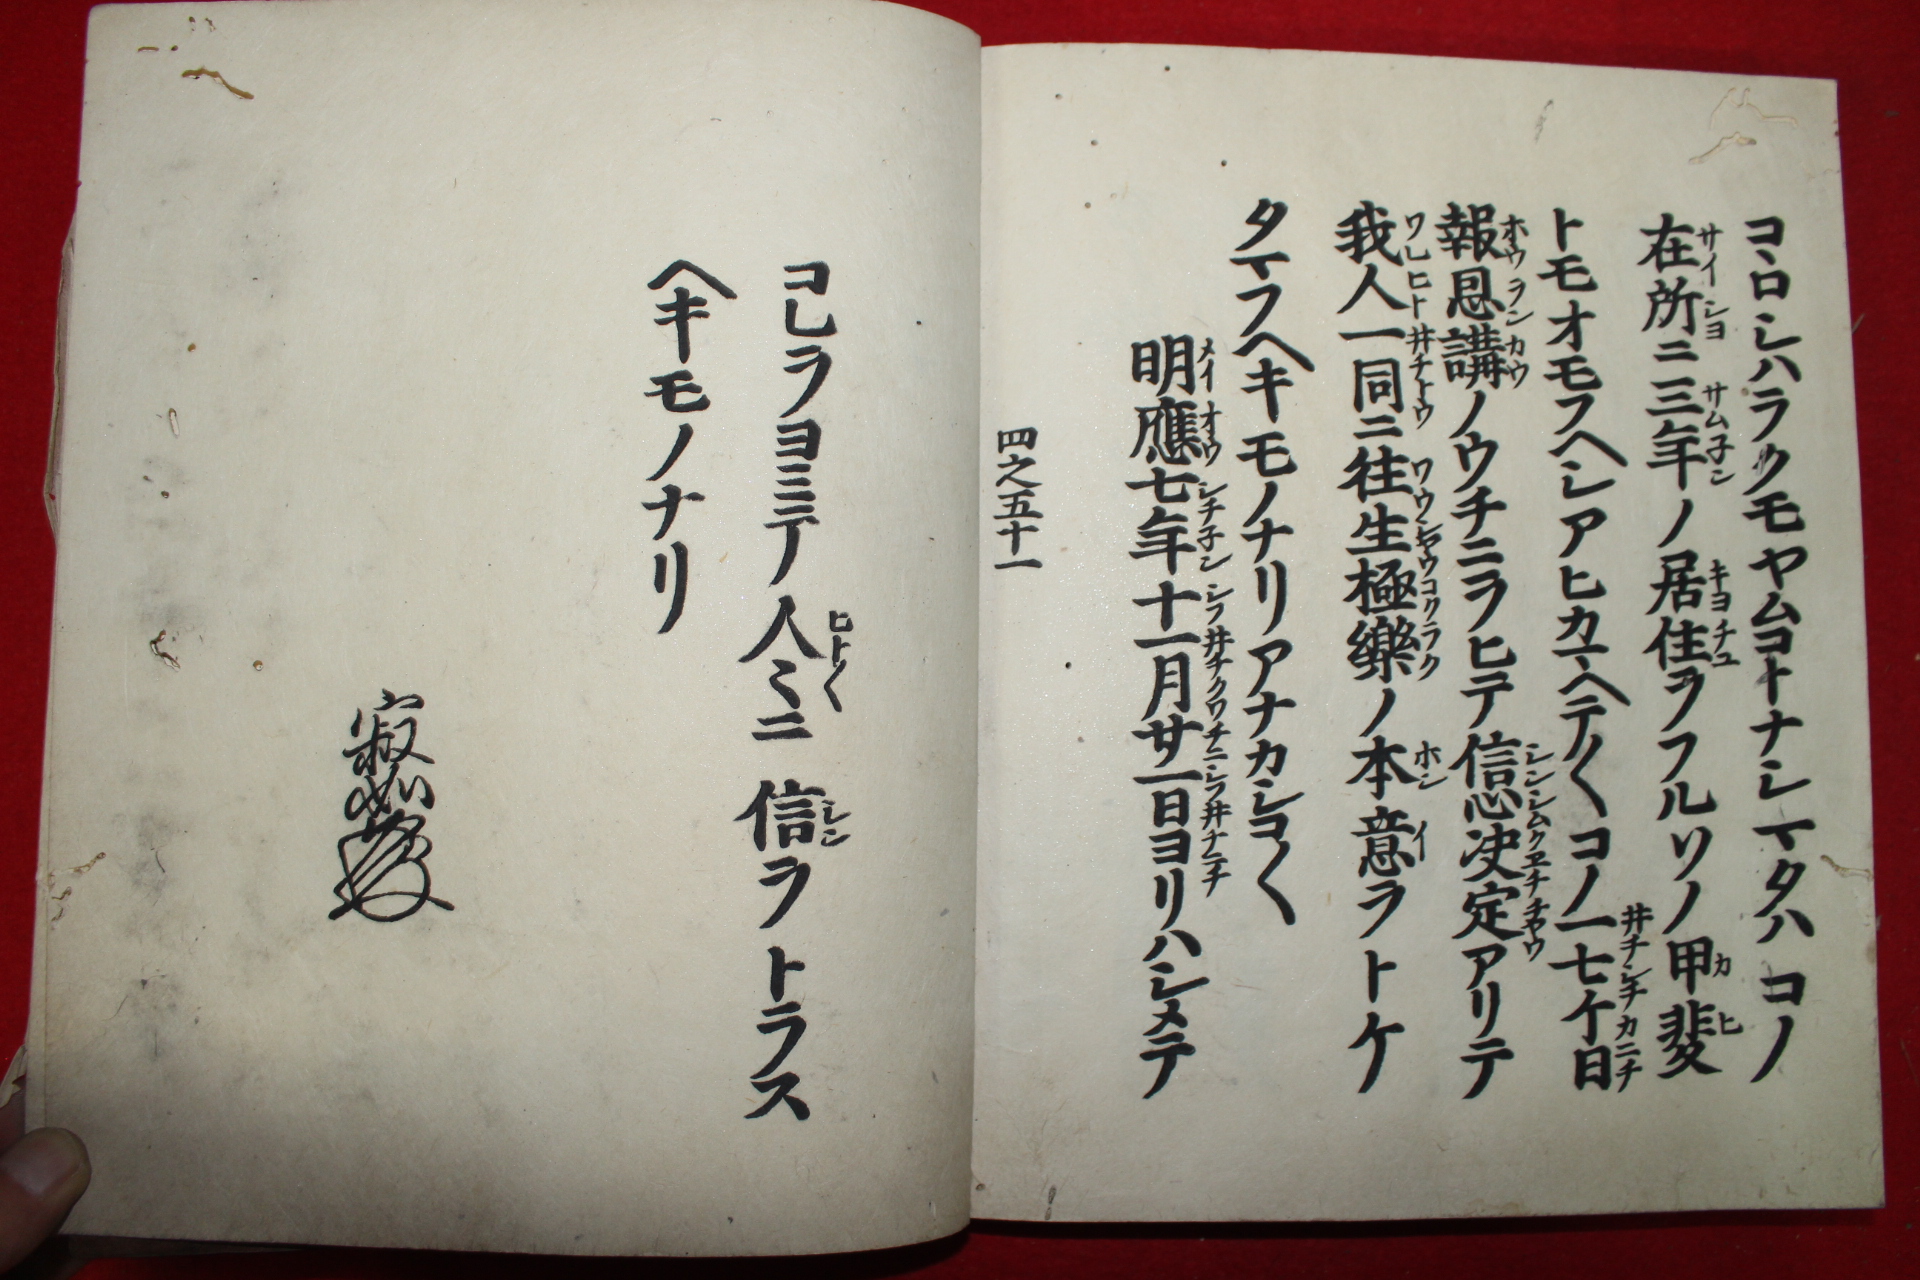 コヽロシハラクモヤムコトナシマタハコノ
在所ニ三年ノ居住ヲフルソノ甲斐
トモオモフヘシアヒカマヘテ〱コノ一七ケ日
報恩講ノウチニヲヒテ信心决定アリテ
我人一同ニ往生極樂ノ本意ヲトケ
タマフヘキモノナリアナカシコ〱
明應七年十一月廿一日ヨリハシメテ
四之五十一
コレヲヨミテ人〻ニ信ヲトラス
ヘキモノナリ
寂如